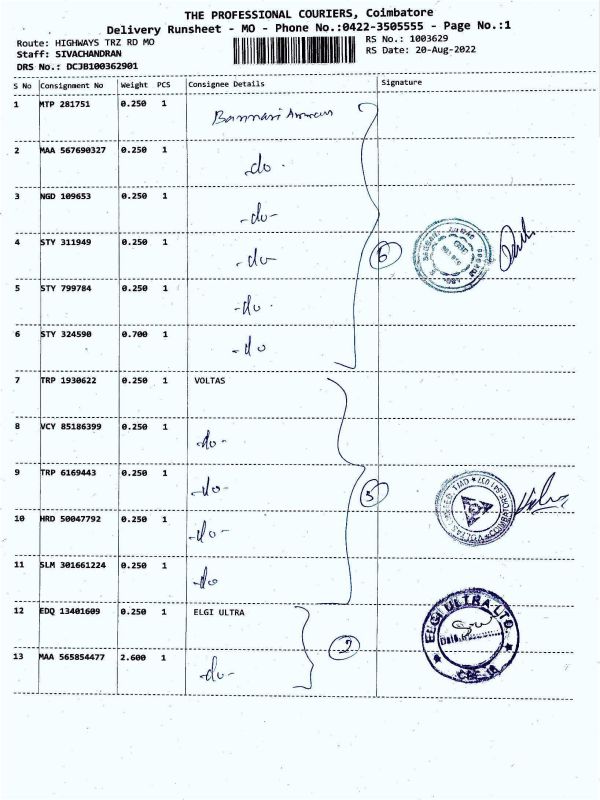 THE PROFESSIONAL COURIERS, Coimbatore
Delivery Runsheet - MO - Phone No.:0422-3505555 - Page No.:1
Route: HIGHWAYS TRZ RD MO
Staff: SIVACHANDRAN
DRS No.: DCJB100362901
RS No.: 1003629
RS Date: 20-Aug-2022
S No Consignment No Weight PCS Consignee Details Signature
1 MTP 281751 0.250 1 Bannari Amman
2 MAA 567690327 0.250 1 -do-
3 NGD 109653 0.250 1 -do-
4 STY 311949 0.250 1 -do-
5 STY 799784 0.250 1 -do-
6 STY 324590 0.700 1 -do
6
7 TRP 1930622 0.250 1 VOLTAS
8 VCY 85186399 0.250 1 -do-
9 TRP 6169443 0.250 1 -do-
10 HRD 50047792 0.250 1 -do-
11 SLM 301661224 0.250 1 -do
5
VOLTAS LIMITED
12 EDQ 13401609 0.250 1 ELGI ULTRA
13 MAA 565854477 2.600 1 -do-
2
ELGI ULTRA LTD.
Date